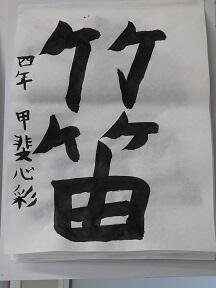 竹笛
四年 甲斐心彩